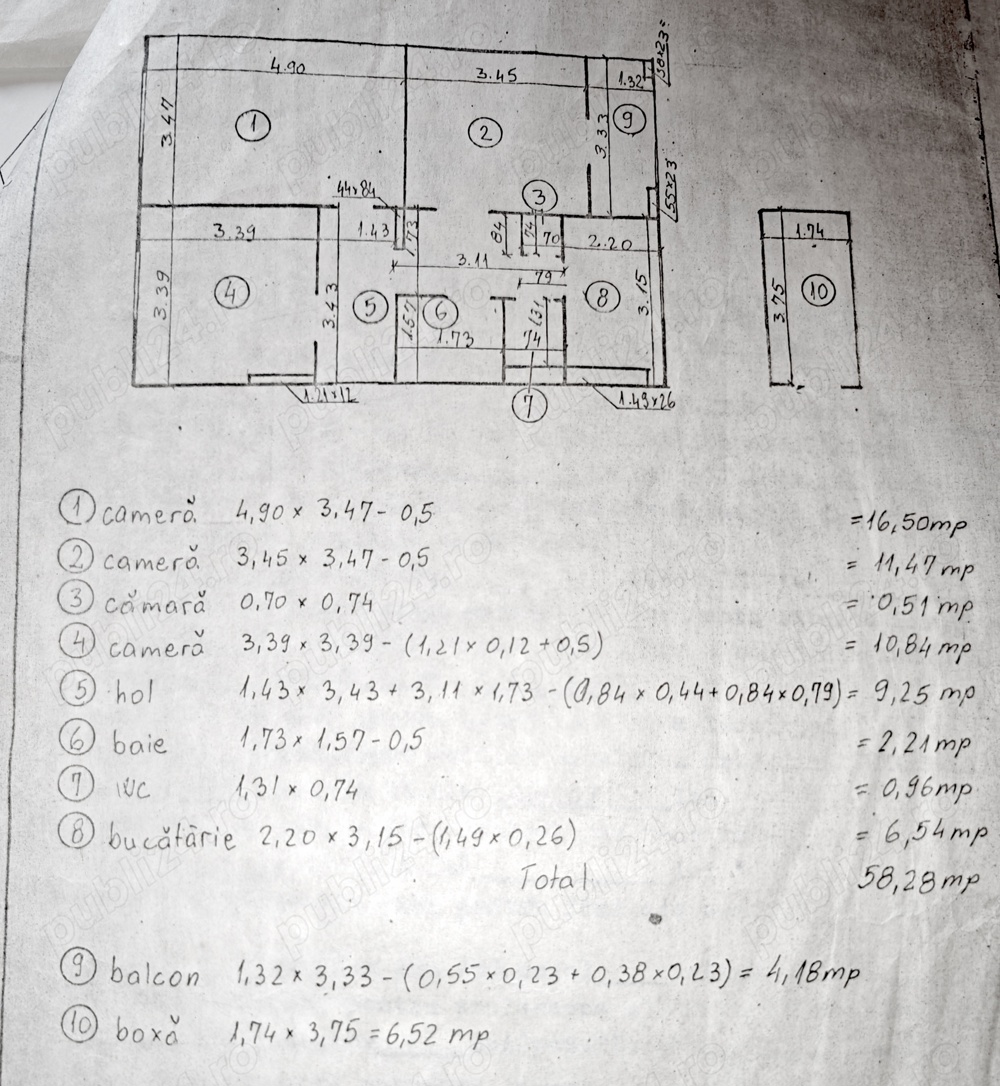 4.90
3.45
1.32
38×23
3.47
1
2
3.33
9
55×23
44×84
3
3.39
1.43
1.73
84
74
70
2.20
1.74
3.11
79
3.39
4
3.43
5
1.57
6
8
3.15
3.75
10
1.73
1.31
74
1.21×12
7
1.43×26
1 cameră 4,90 × 3,47 - 0,5 = 16,50 mp
2 cameră 3,45 × 3,47 - 0,5 = 11,47 mp
3 cămară 0,70 × 0,74 = 0,51 mp
4 cameră 3,39 × 3,39 - (1,21 × 0,12 + 0,5) = 10,84 mp
5 hol 1,43 × 3,43 + 3,11 × 1,73 - (0,84 × 0,44 + 0,84 × 0,79) = 9,25 mp
6 baie 1,73 × 1,57 - 0,5 = 2,21 mp
7 WC 1,31 × 0,74 = 0,96 mp
8 bucătărie 2,20 × 3,15 - (1,49 × 0,26) = 6,54 mp
Total 58,28 mp
9 balcon 1,32 × 3,33 - (0,55 × 0,23 + 0,38 × 0,23) = 4,18 mp
10 boxă 1,74 × 3,75 = 6,52 mp
publi24.ro